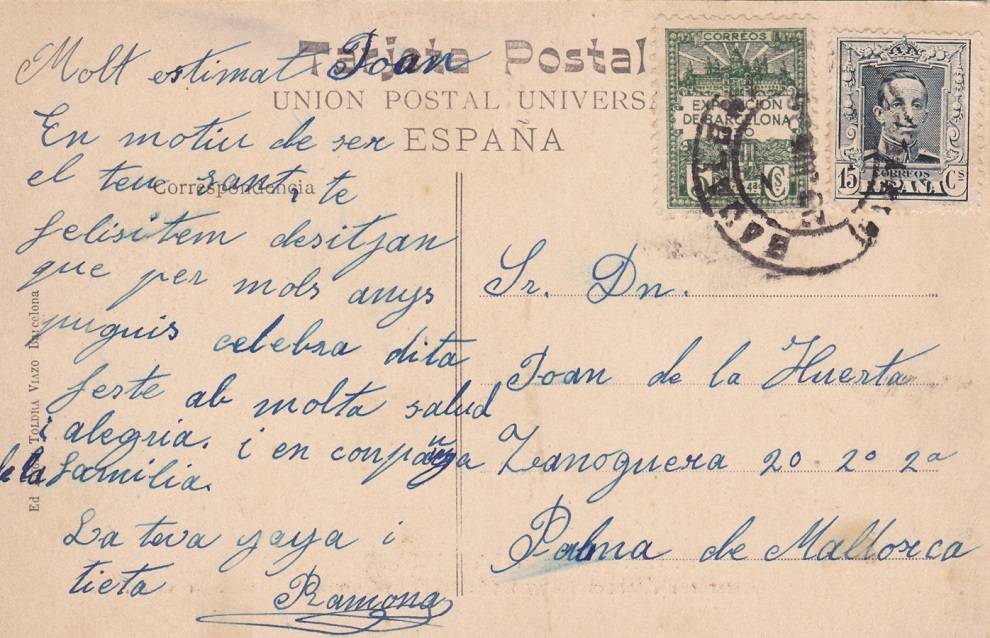 Tarjeta Postal
UNION POSTAL UNIVERSA
ESPAÑA
Correspondencia
CORREOS
EXPOSICION
DE BARCELONA
CORREOS
ESPAÑA
15 Cs
Molt estimat Joan
En motiu de ser
el teu sant, te
felisitem desitjan
que per mols anys
puguis celebra dita
feste ab molta salud
i alegria. i en conpañya
de la familia.
La teva yaya i
tieta Ramona
Sr. Dn.
Joan de la Huerta
Zanoguera 20 2o 2a
Palma de Mallorca
TOLDRA VIAZO Barcelona